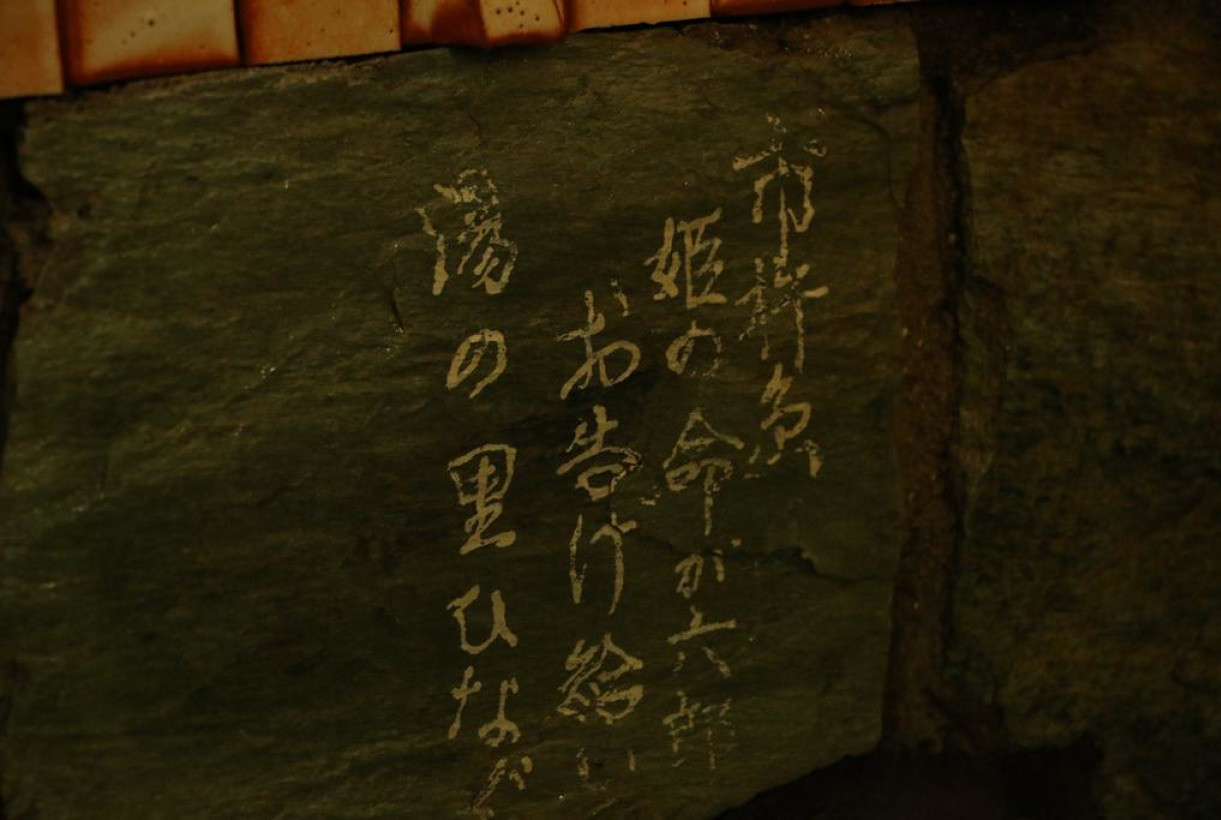 市杵島
姫の命が六郎
にお告げ給い
湯の里ひなぶ